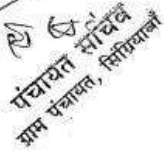 पंचायत सचिव
ग्राम पंचायत, सिंग्रियावाँ